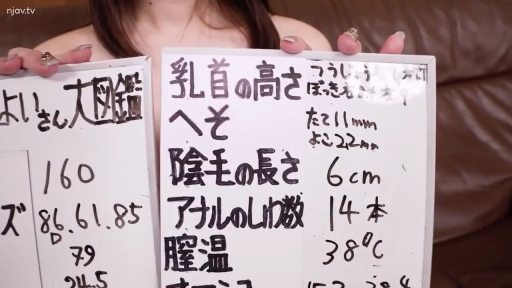 njav.tv
よいさん大図鑑
160
ズ 86.61.85
D
79
24.5
乳首の高さ
へそ たて11mm
よこ22mm
陰毛の長さ 6cm
アナルのしわ数 14本
膣温 38℃